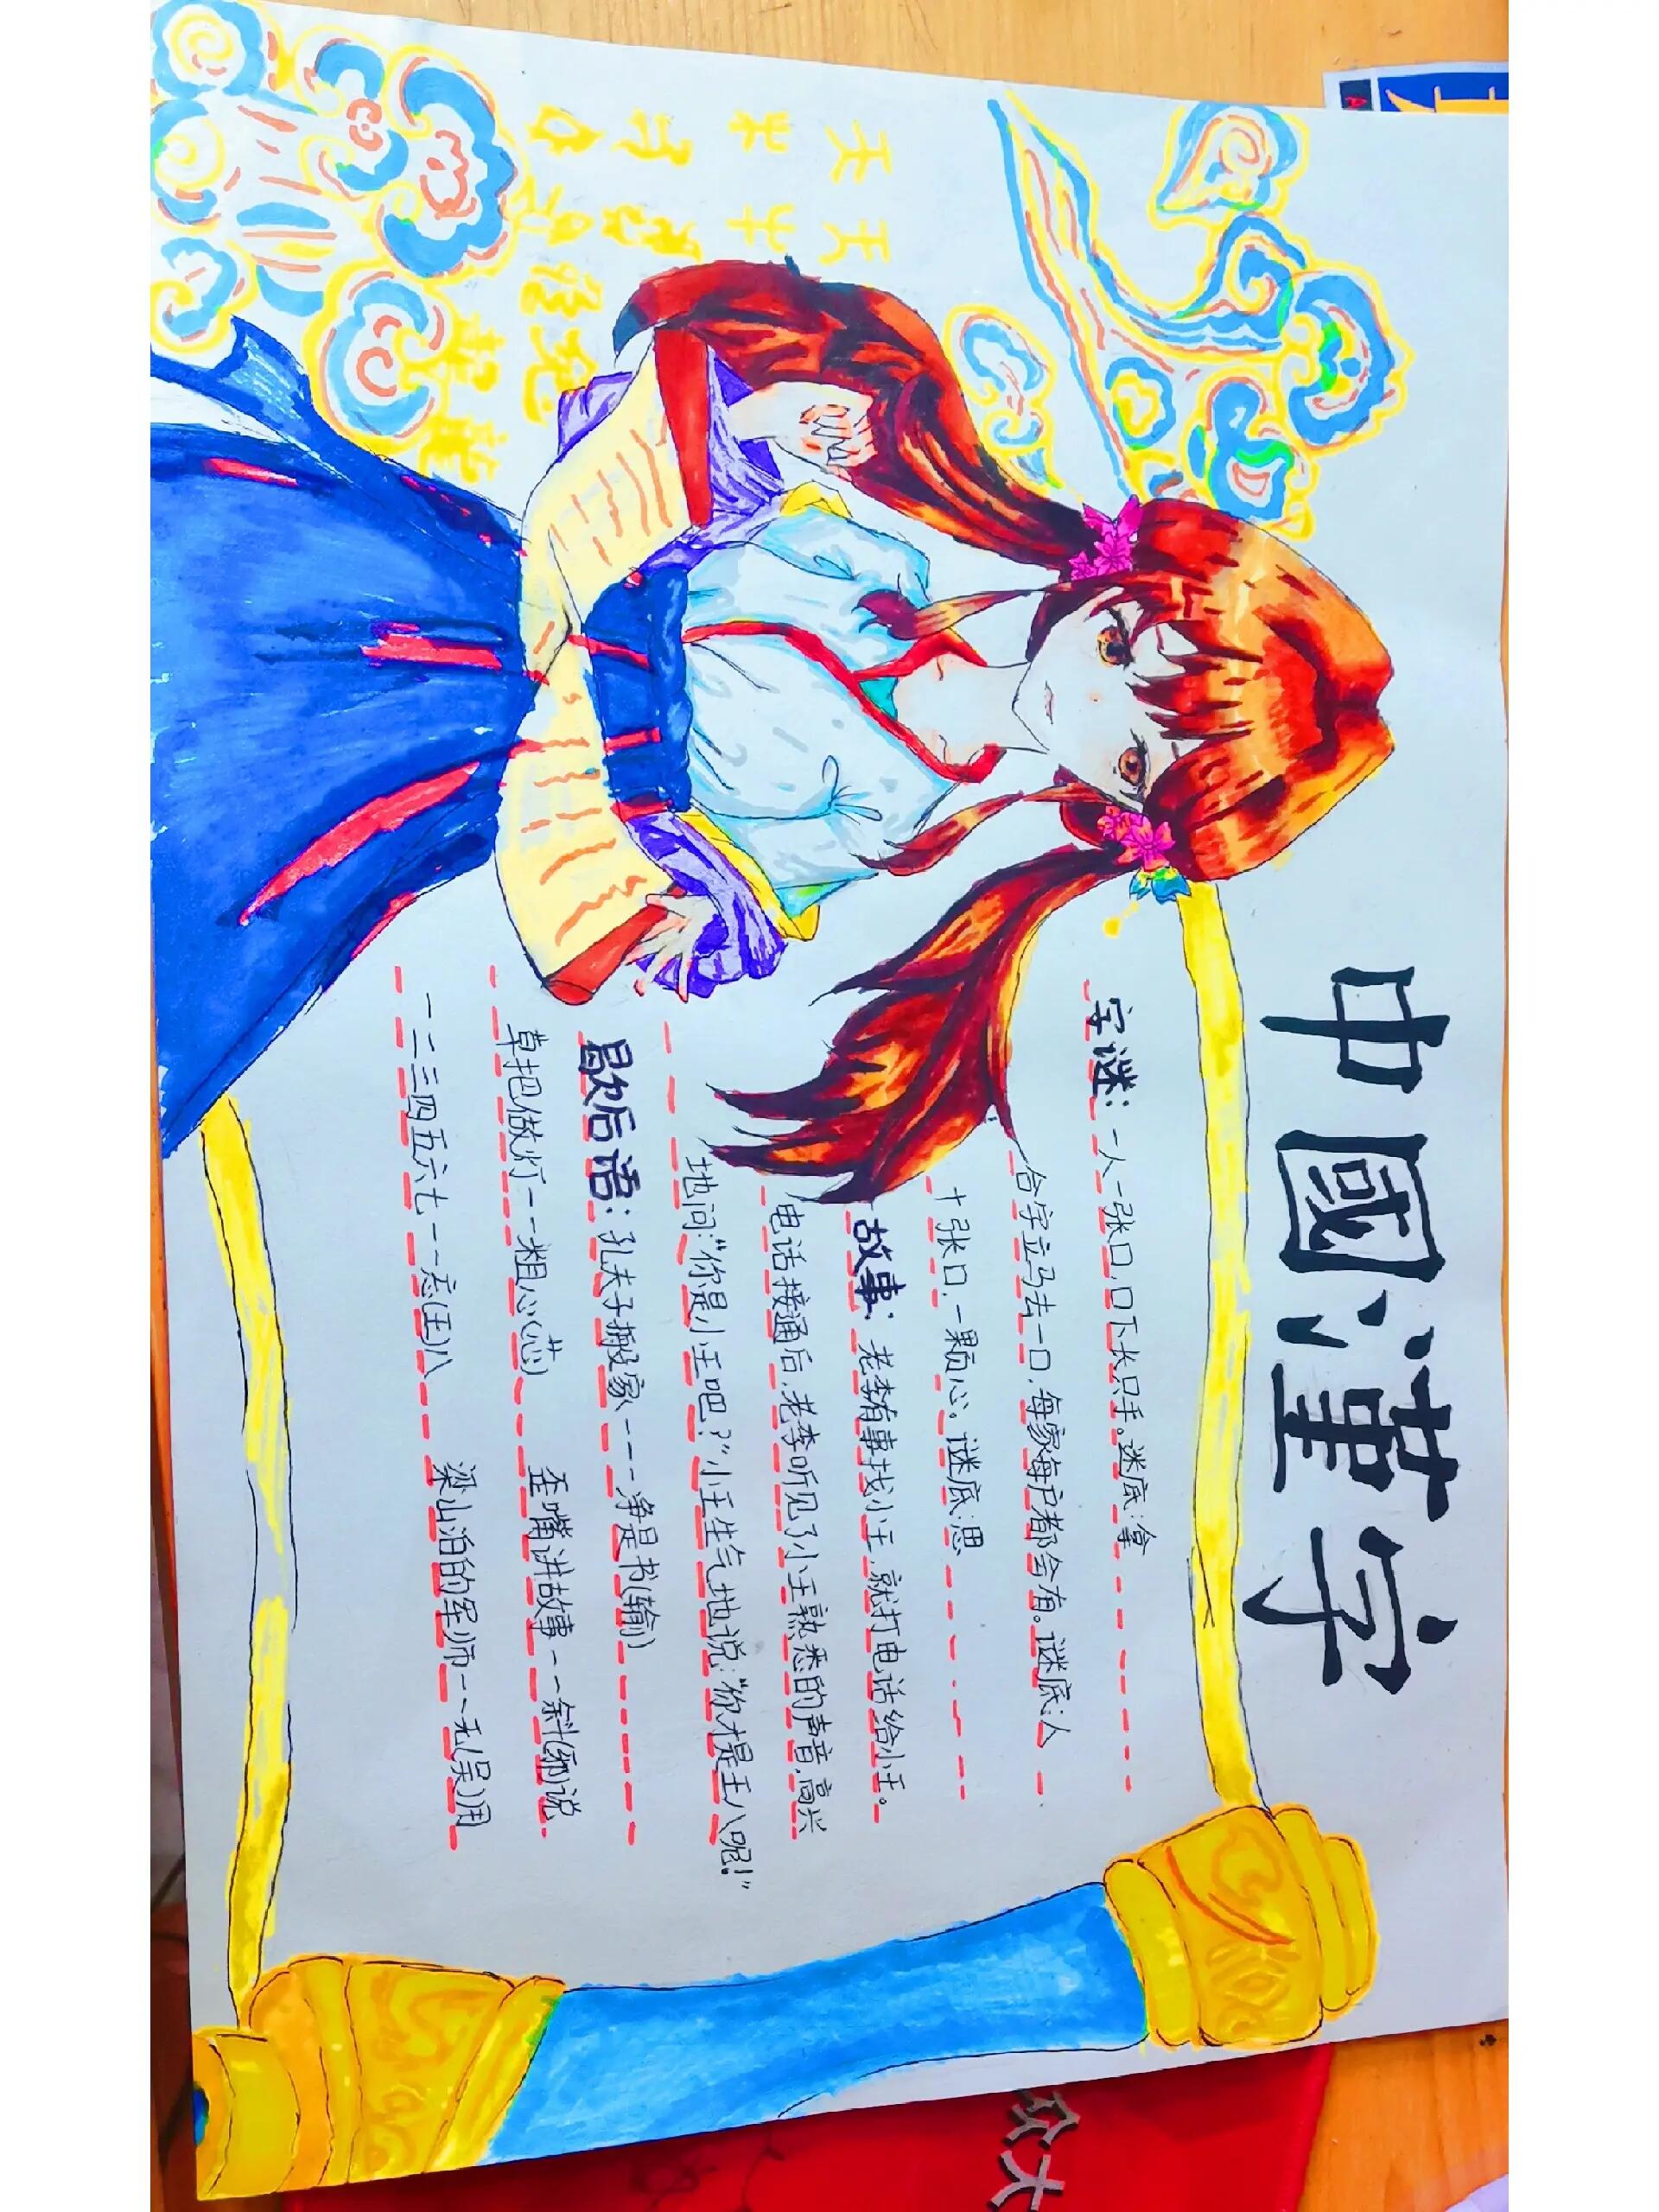 中國漢字
字谜：一人一张口，口下长只手。迷底：拿
合字立马去一口，每家每户都会有。谜底：人
十张口，一颗心。谜底：思
故事：老李有事找小王，就打电话给小王。
电话接通后，老李听见了小王熟悉的声音，高兴
地问：“你是小王吧？”小王生气地说：“你才是王八呢！”
歇后语：孔夫子搬家----净是书(输)
草把做灯--粗心(芯) 歪嘴讲故事--斜(邪)说
一二三四五六七--忘(王)八 梁山泊的军师--无(吴)用
天天